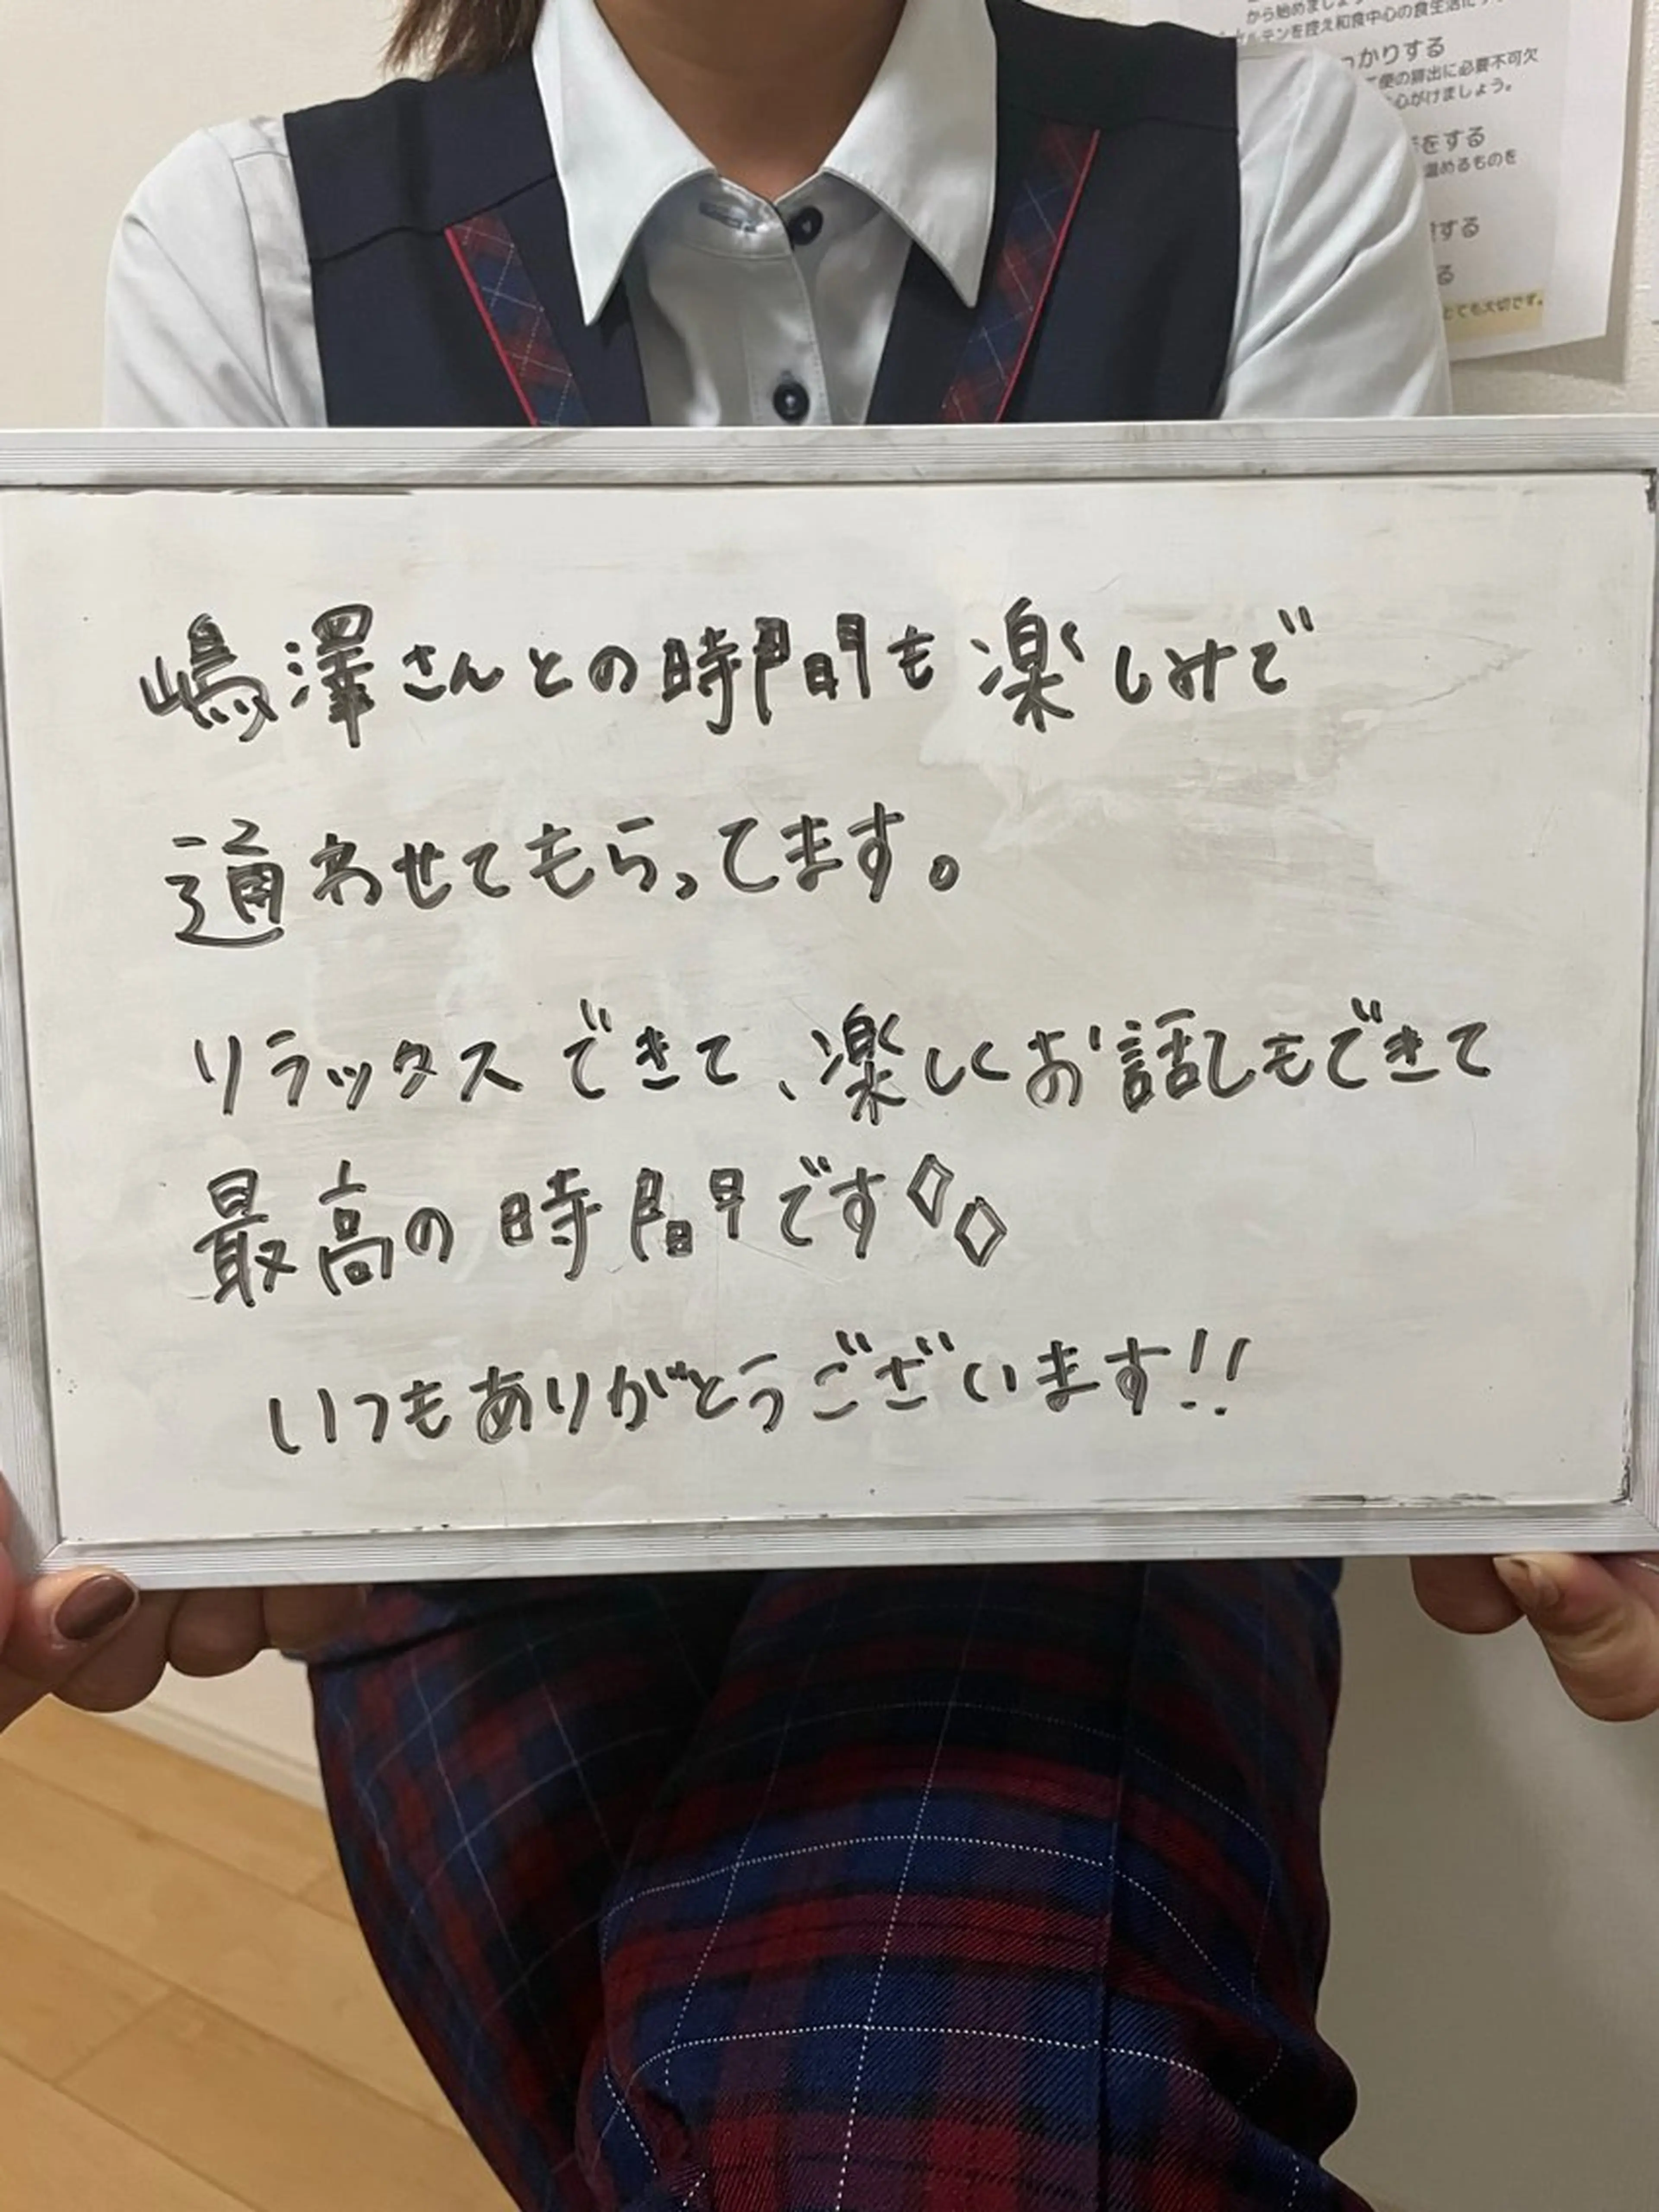 から始めましょ
ルテンを控え和食中心の食生活に
かりする
便の排出に必要不可欠
心がけましょう。
をする
温めるものを
する
る
とても大切です。
嶋澤さんとの時間も楽しみで
通わせてもらってます。
リラックスできて、楽しくお話しもできて
最高の時間です◇◇
いつもありがとうございます!!